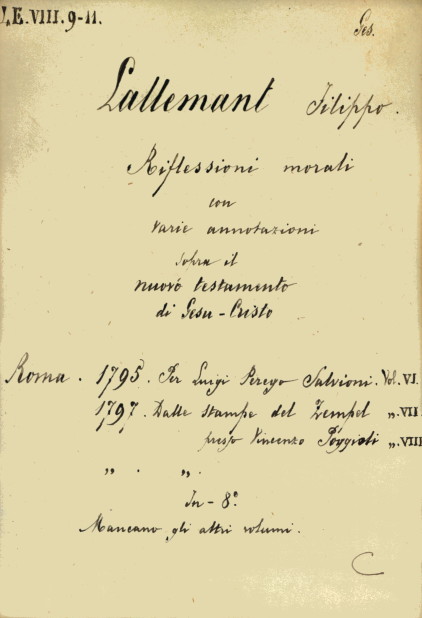 I.E.VIII.9-11.
Ges.
Lallemant Filippo.
Riflessioni morali
con
varie annotazioni
sopra il
nuovo testamento
di Gesu-Cristo
Roma. 1795. Per Luigi Perego Salvioni. Vol. VI.
1797. Dalle stampe del Zempel „. VII
presso Vincenzo Poggioli „. VIII
„ . „.
In-8°.
Mancano gli altri volumi.
C